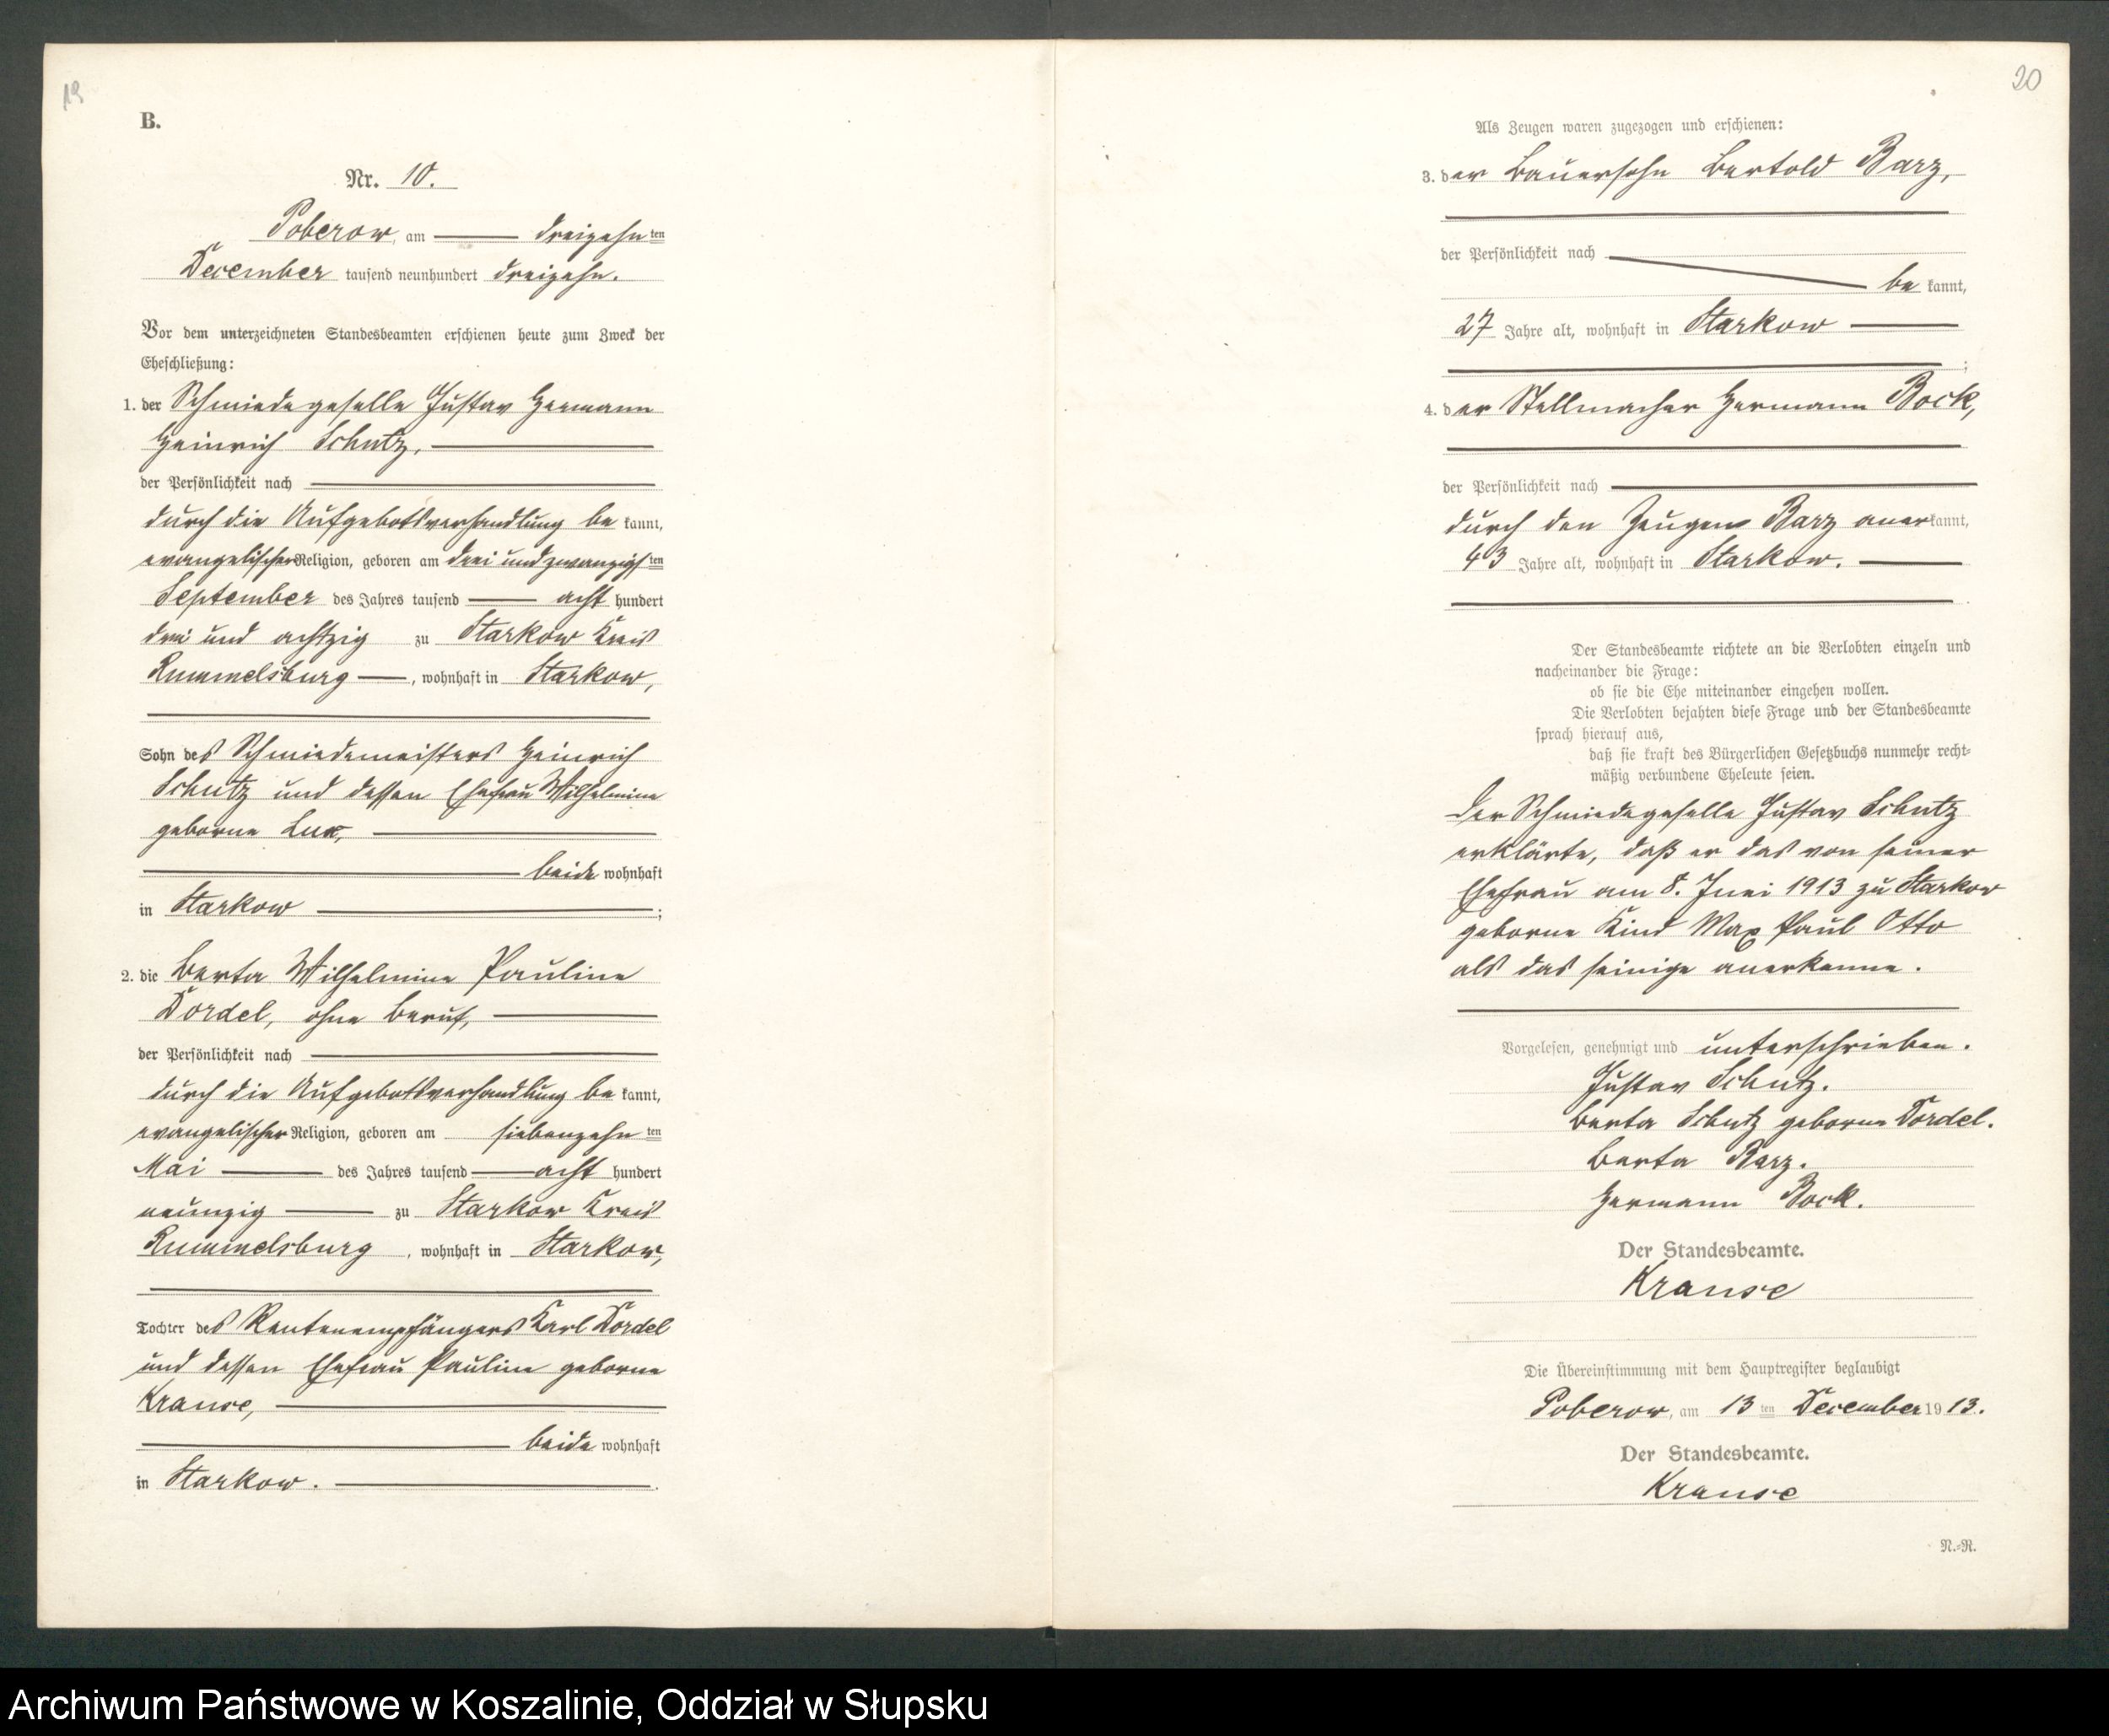 19
B.
Nr. 10.
Poberow, am dreizehnten
December tausend neunhundert dreizehn.
Vor dem unterzeichneten Standesbeamten erschienen heute zum Zweck der
Eheschließung:
1. der Schmiedegeselle Gustav Hermann
Heinrich Schutz,
der Persönlichkeit nach
durch die Aufgebotsverhandlung bekannt,
evangelischer Religion, geboren am drei und zwanzigsten
September des Jahres tausend acht hundert
drei und achtzig zu Starkow Kreis
Rummelsburg, wohnhaft in Starkow,
Sohn des Schmiedemeisters Heinrich
Schutz und dessen Ehefrau Wilhelmine
geborne Lux,
beide wohnhaft
in Starkow ;
2. die Berta Wilhelmine Pauline
Dordel, ohne Beruf,
der Persönlichkeit nach
durch die Aufgebotsverhandlung bekannt,
evangelischer Religion, geboren am siebenzehnten
Mai des Jahres tausend acht hundert
neunzig zu Starkow Kreis
Rummelsburg, wohnhaft in Starkow,
Tochter des Rentenempfängers Karl Dordel
und dessen Ehefrau Pauline geborne
Krause,
beide wohnhaft
in Starkow.
20
Als Zeugen waren zugezogen und erschienen:
3. der Bauersohn Bertold Barz,
der Persönlichkeit nach
bekannt,
27 Jahre alt, wohnhaft in Starkow
;
4. der Stellmacher Hermann Bock,
der Persönlichkeit nach
durch den Zeugen Barz anerkannt,
43 Jahre alt, wohnhaft in Starkow.
Der Standesbeamte richtete an die Verlobten einzeln und
nacheinander die Frage:
ob sie die Ehe miteinander eingehen wollen.
Die Verlobten bejahten diese Frage und der Standesbeamte
sprach hierauf aus,
daß sie kraft des Bürgerlichen Gesetzbuchs nunmehr recht-
mäßig verbundene Eheleute seien.
Der Schmiedegeselle Gustav Schutz
erklärte, daß er das von seiner
Ehefrau am 8. Juni 1913 zu Starkow
geborne Kind Max Paul Otto
als das seinige anerkenne.
Vorgelesen, genehmigt und unterschrieben.
Gustav Schutz.
Berta Schutz geborne Dordel.
Barz.
Hermann Bock.
Der Standesbeamte.
Krause
Die Übereinstimmung mit dem Hauptregister beglaubigt
Poberow, am 13ten December 1913.
Der Standesbeamte.
Krause
N.-R.
Archiwum Państwowe w Koszalinie, Oddział w Słupsku